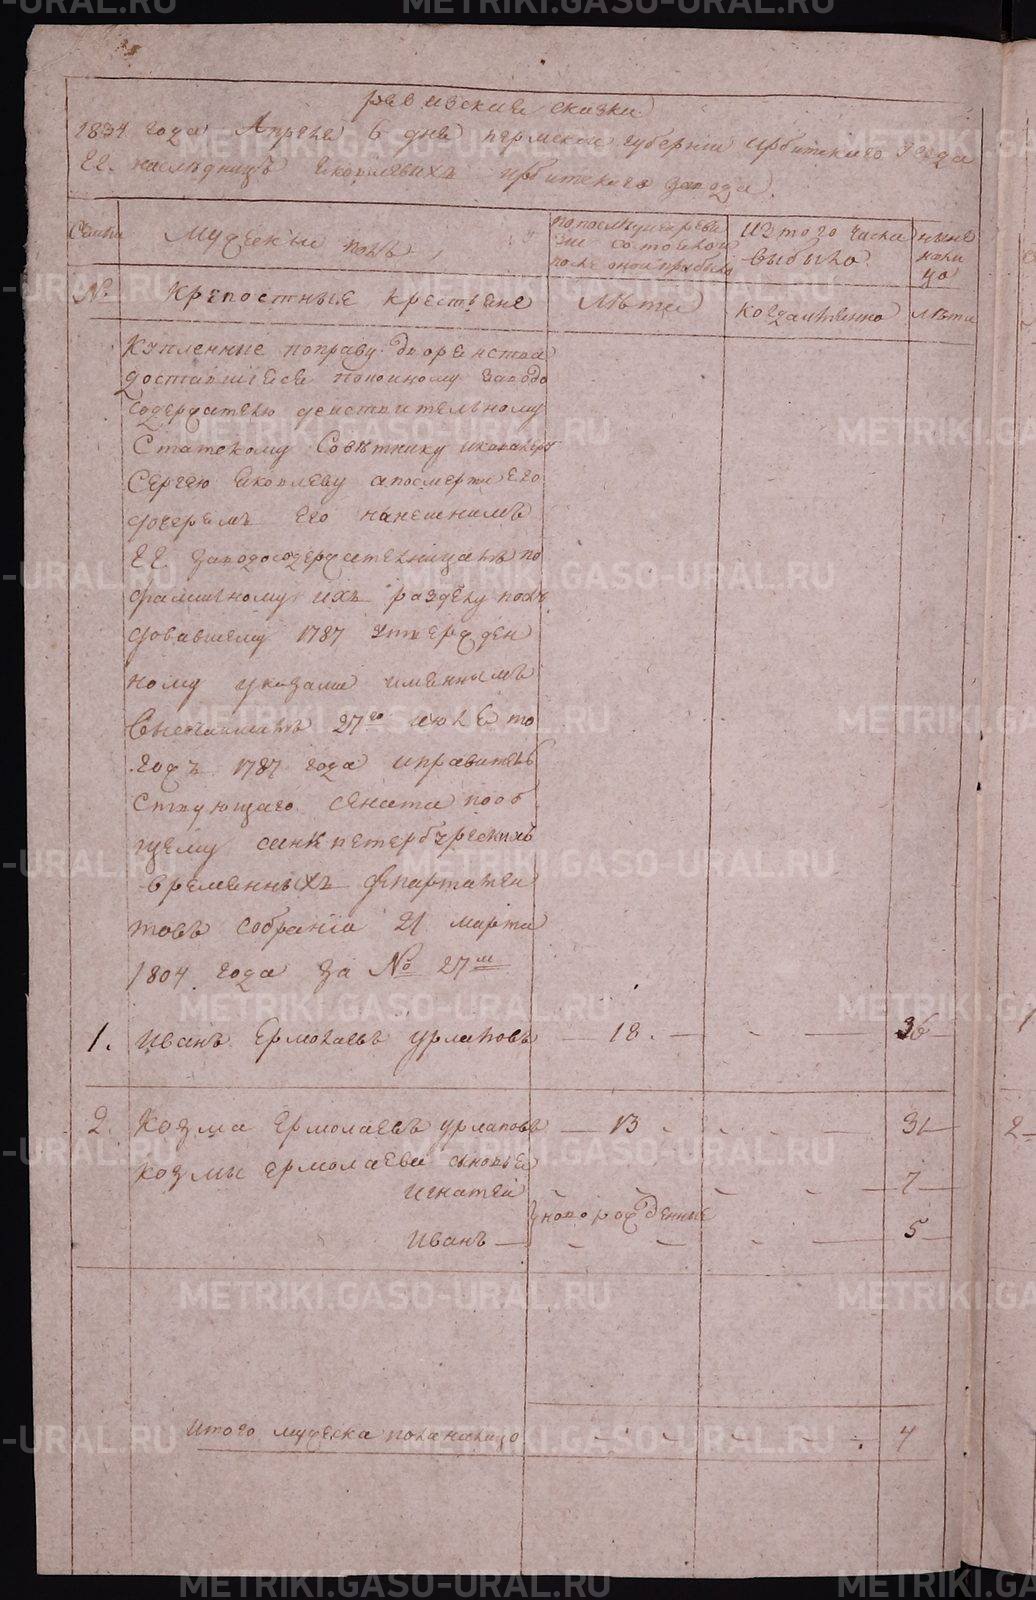 ревизские сказки
1834 года Апреля 6 дня пермской губернии ирбитского уезда
ЕГ. наследницъ Яковлевихъ ирбитского завода
Семьи
Мужескій полъ
по последней реви
зіи состояло и
после оной прибыло
Изъ того числа
выбыло
ныне
нали
цо
№.
Крепостные крестьяне
Лѣта
Когда имянно
Лѣта
Купленные поправу дворенства
доставшіеся покойному заводо
содержателю действительному
Статскому Совѣтнику икавалеру
Сергею Яковлеву апосмерти Его
дочерямъ Его нанешнимъ
ЕГ. заводосодержательницамъ по
фамильному ихъ разделу послѣ
довавшему 1787 утвержден
ному указами имяннымъ
Высочайшимъ 27го июля то
гожъ 1787 года иправитель
ствующаго сената пооб
щему санкпетербургскихъ
временныхъ департамен
товъ собранію 21 марта
1804 года за № 27м
1. Иванъ Ермолаевъ Урлаповъ — 18. — - — 36
2. Козма Ермолаевъ урлаповъ — 13 - - - — 31
Козмы ермолаева сыновья
Игнатей - - - - 7
новорожденные
Иванъ — - - - - 5
Итого мужеска пола налицо - - - - - 4
METRIKI.GASO-URAL.RU